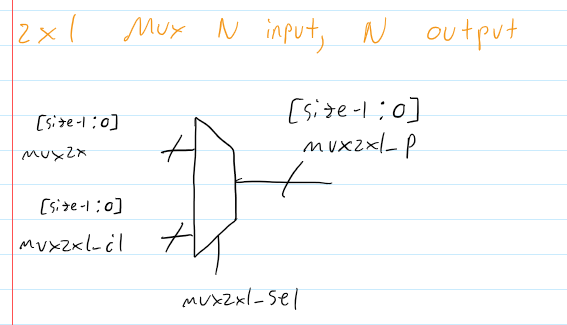 2x1 Mux N input, N output
[size-1:0]
[size-1:0]
mux2x1_p
mux2x
[size-1:0]
mux2x1_i1
mux2x1_sel